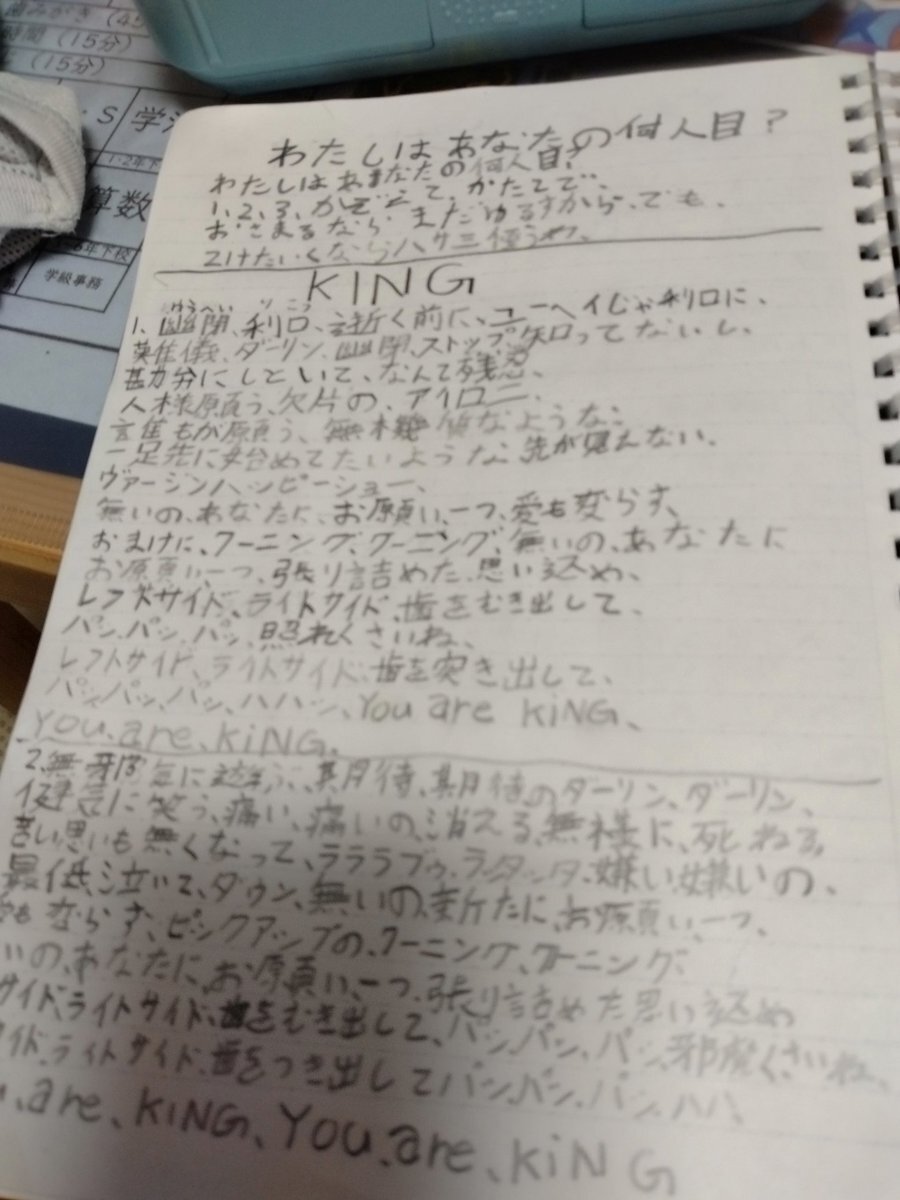 歯みがき (45
時間 (15分)
(15分)
S 学
1・2年下
算数
6年下校
学級事務
わたしは あなたの何人目?
わたしはあなたの何人目?
1、2、3、かぞえて、かたてで、
おさまるなら、まだゆるすから、でも、
こけたいくならハサミ使うわ、
KING
ゆうへい りこう
1、幽閉、利口、逝く前に、ユーヘイじゃ利口に、
難儀、ダーリン、幽閉、ストップ知ってないし、
甚力分にしといて、なんて残忍、
人様願う、欠片の、アイロニー、
誰もが願う、無機質なような、
一足先に始めてたいような、先が見えない、
ヴァージンハッピーショー、
無いの、あなたに、お願い、一つ、愛も変らず、
おまけに、ワーニング、ワーニング、無いの、あなたに
お願い、一つ、張り詰めた、思い込め、
レフトサイド、ライトサイド、歯をむき出して、
パッ、パッ、パッ、照れくさいね、
レフトサイド、ライトサイド、歯を突き出して、
パッ、パッ、パッ、ハハン、You are KiNG、
You.are.KiNG.
2、無邪気に遊ぶ、期待、期待のダーリン、ダーリン、
健気に笑う、痛い、痛いの、消える、無様に、死ねる、
苦い思いも無くなって、ラララブゥ、ラタッタ、嫌い、嫌いの、
最低、泣いて、ダウン、無いの、新たに、お願い、一つ、
も変らず、ピックアップの、ワーニング、ワーニング、
いの、あなたに、お願い、一つ、張り詰めた思い込め
サイド、ライトサイド、歯をむき出して、パッ、パッ、パッ、邪魔くさいね、
イド、ライトサイド、歯をつき出してパッ、パッ、パッ、ハハ、
.are、KiNG、You.are、KiNG